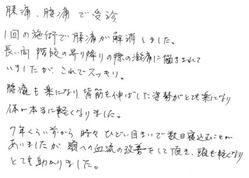 膝痛、腰痛で受診
1回の施術で膝痛が解消しました。
長い間階段の昇り降りの際の激痛に悩まされて
いましたが、これでスッキリ。
腰痛も楽になり背筋を伸ばした姿勢がとても楽になり
体が本当に軽くなりました。
7年くらい前から時々ひどい目まいで数日寝込むことが
ありましたが頭への血流の改善をして頂き、頭も軽くなり
とても助かりました。